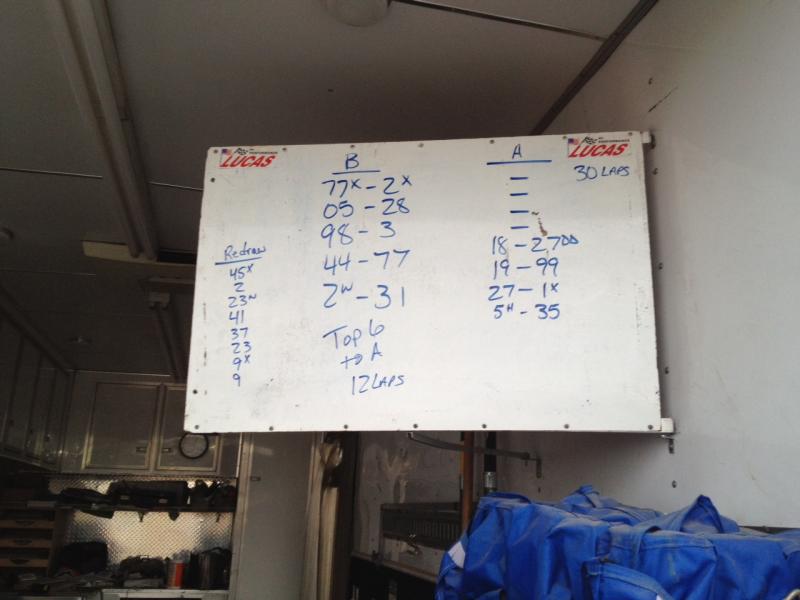 LUCAS
LUCAS
B
77X - 2X
05 - 28
98 - 3
44 - 77
2W - 31
Top 6
to A
12 LAPS
A
30 LAPS
-
-
-
-
18 - 27DD
19 - 99
27 - 1X
5H - 35
Redraw
45X
2
23N
41
37
23
9X
9